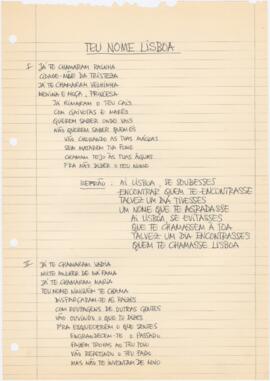 TEU NOME LISBOA
I JÁ TE CHAMARAM RAINHA
CIDADE-MÃE DA TRISTEZA
JÁ TE CHAMARAM VELHINHA
MENINA E MOÇA, PRINCESA
JÁ RIMARAM O TEU CAIS
COM GAIVOTAS E MARÉS
QUEREM SABER ONDE VAIS
NÃO QUEREM SABER QUEM ÉS
VÃO CHORANDO AS TUAS MÁGOAS
SEM MATAREM TUA FOME
CHAMAM TEJO ÀS TUAS ÁGUAS
PRA NÃO DIZER O TEU NOME
REFRÃO: AI LISBOA, SE SOUBESSES
ENCONTRAR QUEM TE ENCONTRASSE
TALVEZ UM DIA TIVESSES
UM NOME QUE TE AGRADASSE
AI LISBOA, SE EVITASSES
QUE TE CHAMASSEM À TOA
TALVEZ UM DIA ENCONTRASSES
QUEM TE CHAMASSE LISBOA
II JÁ TE CHAMARAM VADIA
MUITO MULHER DE MÁ FAMA
JÁ TE CHAMARAM MARIA
TEU NOME NINGUÉM TE CHAMA
DISFARÇARAM-TE AS RAÍZES
COM ROUPAGENS DE OUTRAS GENTES
VÃO OUVINDO O QUE TU DIZES
PRA ESQUECEREM O QUE SENTES
ENGRANDECEM-TE O PASSADO
FAZEM TROVAS AO TEU POVO
VÃO REPETINDO O TEU FADO
MAS NÃO TE INVENTAM DE NOVO